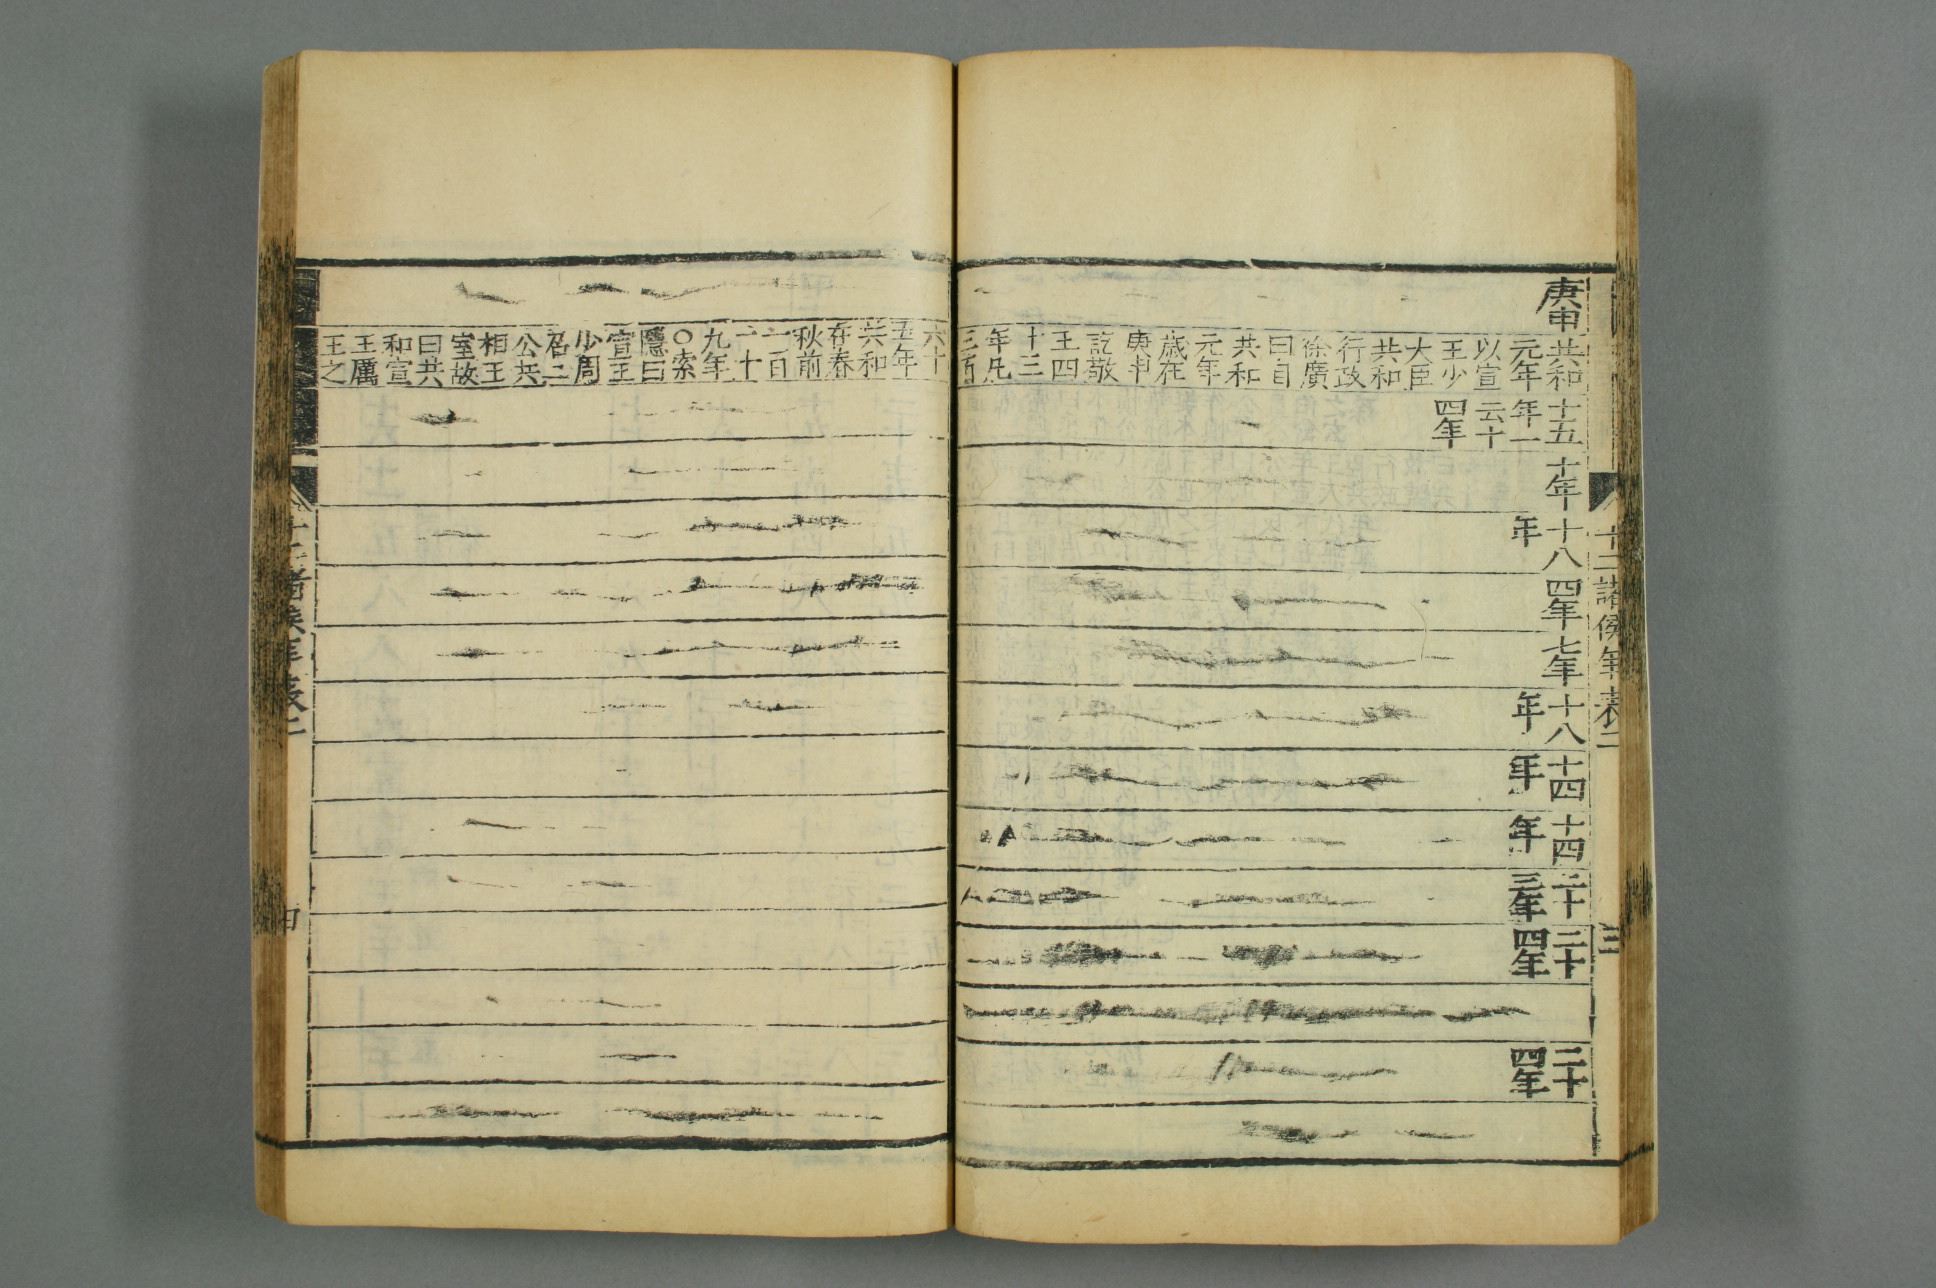 十二諸侯年表二
三
庚申
共和
元年
以宣
王少
大臣
共和
行政
徐廣
曰自
共和
元年
歲在
庚申
訖敬
王四
十三
年凡
三百
十五
年一
云十
四年
十年
十八
年
四年
七年
十八
年
十四
年
十四
年
二十
三年
二十
四年
二十
四年
六十
五年
共和
在春
秋前
一百
一十
九年
○索
隱曰
宣王
少周
召二
公共
相王
室故
曰共
和宣
王厲
王之
十二諸侯年表二